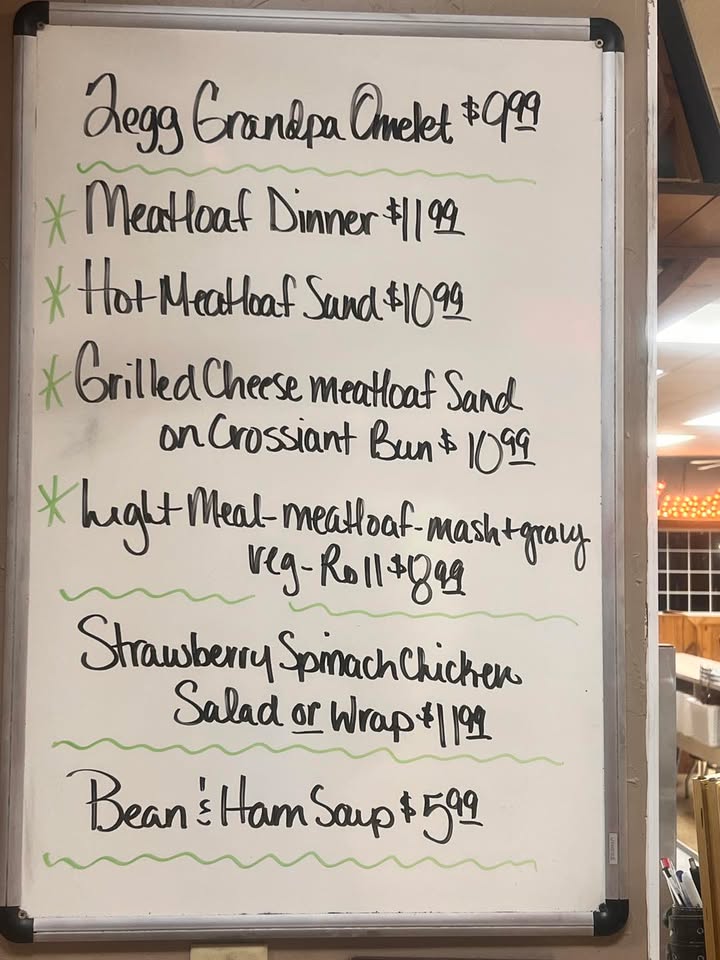 2egg Grandpa Omelet $9.99
* Meatloaf Dinner $11.99
* Hot Meatloaf Sand $10.99
* Grilled Cheese meatloaf Sand
on Crossiant Bun $10.99
* Light Meal-meatloaf-mash+gravy
veg-Roll $8.99
Strawberry Spinach Chicken
Salad or Wrap $11.99
Bean & Ham Soup $5.99